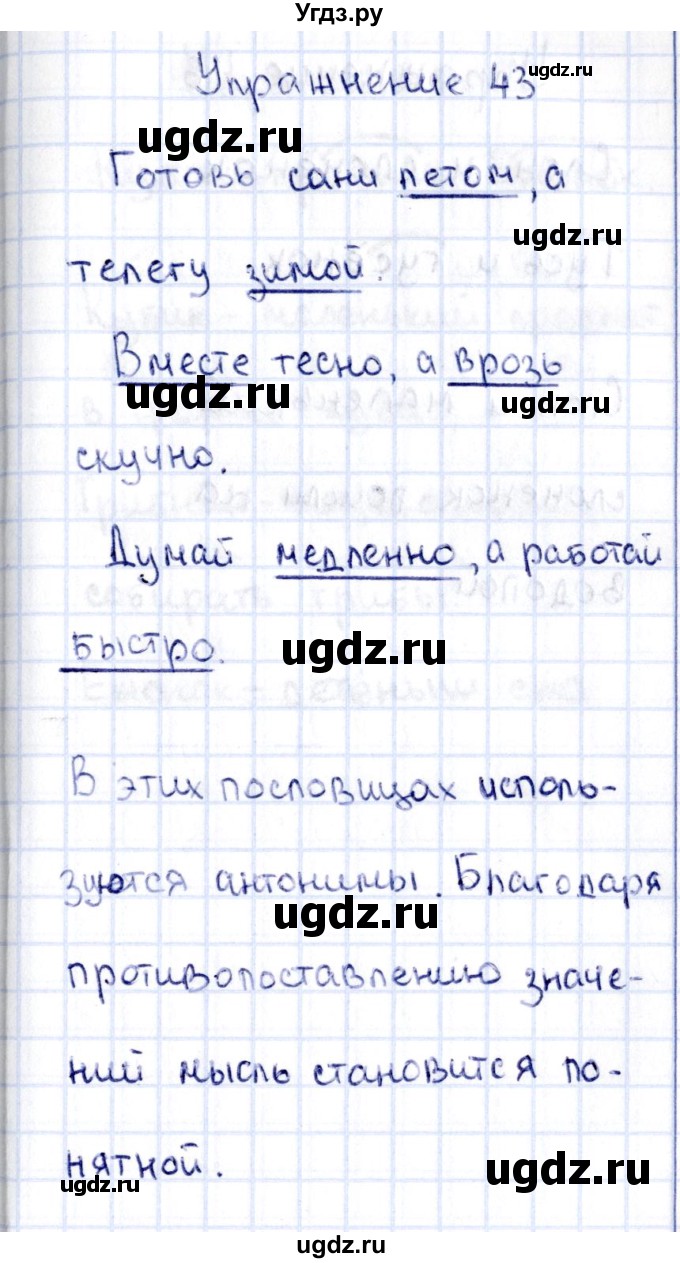 Угдз.ру
Упражнение 43
ugdz.ru
ugdz.ru
Готовь сани летом, а
ugdz.ru
телегу зимой.
Вместе тесно, а врозь
ugdz.ru
ugdz.ru
скучно.
Думай медленно, а работай
быстро.
ugdz.ru
В этих пословицах исполь-
зуются антонимы. Благодаря
ugdz.ru
противопоставлению значе-
ний мысль становится по-
нятной.
ugdz.ru
ugdz.ru
ugdz.ru